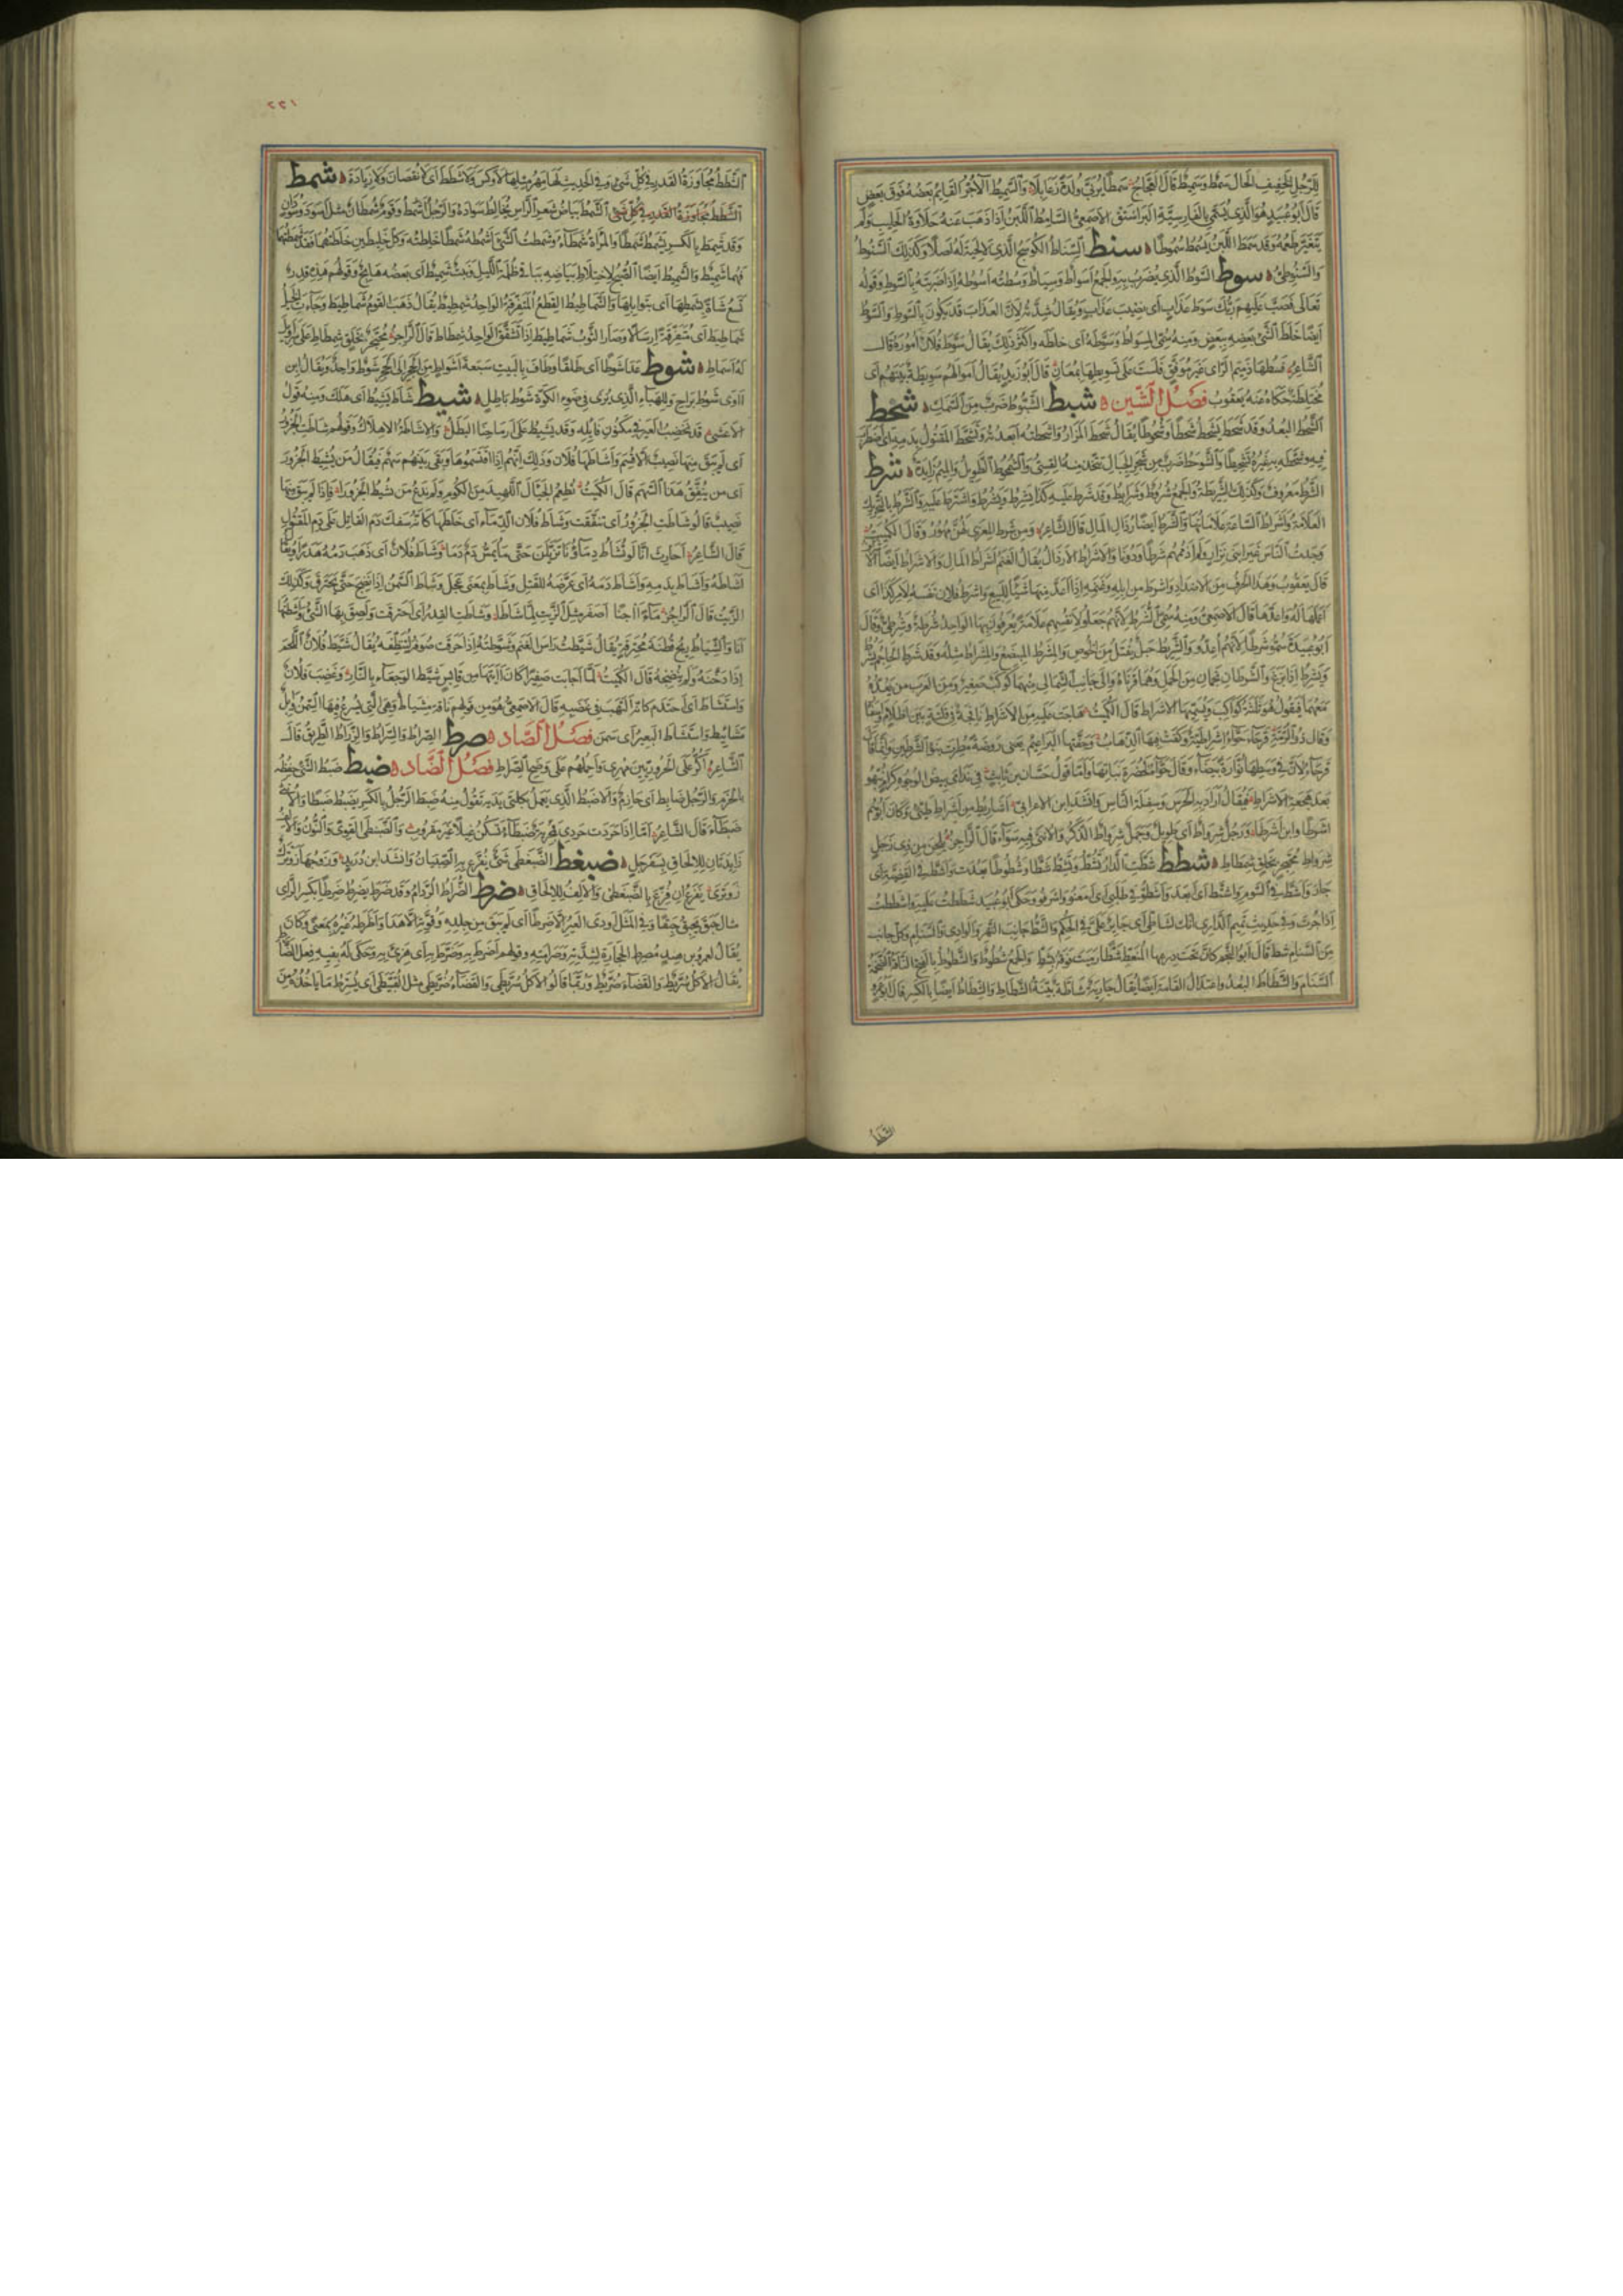 للرجل الخفيف الحال سمط وسميط قال العجاج سمطا يربي ولدة زعابلا والسميط الآجر القايم بعضه فوق بعض
قال ابو عبيد هو الذي يسمى بالفارسية البراستق الاصمعي السامط اللبن اذا ذهب عنه حلاوة الحليب ولم
يتغير طعمه وقد سمط اللبن يسمط سموطا سنط السناط الكوسج الذي لا لحية له اصلا وكذلك السنوط
والسنوطي سوط السوط الذي يضرب به والجمع اسواط وسياط وسطته اسوطه اذا ضربته بالسوط وقوله
تعالى فصب عليهم ربك سوط عذاب اى نصيب عذاب ويقال شدته لان العذاب قد يكون بالسوط والسوط
ايضا خلط الشئ بعضه ببعض ومنه سمي المسواط وسوطه اى خلطه واكثر ذلك يقال سوط فلان اموره قال
الشاعر فسطها ذميم الراى غير موفق فلست على تسويطها بمعان قال ابو زيد يقال اموالهم سويطة بينهم اى
مختلطة حكاه عنه يعقوب فصل الشين شبط الشبوط ضرب من السمك شحط
الشحط البعد وقد شحط يشحط شحطا وشحوطا يقال شحط المزار واشحطته ابعدته وتشحط المقتول بدمه اى اضطرب
فيه وشحطه به غيره تشحيطا والشوحط ضرب من شجر الجبال تتخذ منه القسي والشمحوط الطويل والميم زايدة شرط
الشرط معروف وكذلك الشريطة والجمع شروط وشرايط وقد شرط عليه كذا يشرط ويشرط واشترط عليه والشرط بالتحريك
العلامة واشراط الساعة علاماتها والشرط ايضا رذال المال قال الشاعر ومن شرط المعزى لهن مهور وقال الكميت
وجدت الناس غير ابني نزار ولم اذممهم شرطا ودونا والاشراط الارذال يقال الغنم اشراط المال والاشراط ايضا الاشراف
قال يعقوب وهذا الحرف من الاضداد واشرط من ابله وغنمه اذا اعد منها شيئا للبيع واشرط فلان نفسه لامر كذا اى
اعلمها له واعدها قال الاصمعي ومنه سمي الشرط لانهم جعلوا لانفسهم علامة يعرفون بها الواحد شرطة وشرطي وقال
ابو عبيدة سموا شرطا لانهم اعدوا والشريط حبل يفتل من الخوص والمشرط المبضع والمشراط مثله وقد شرط الحاجم يشرط
ويشرط اذا بزغ والشرطان نجمان من الحمل وهما قرناه والى جانب الشمالي منهما كوكب صغير ومن العرب من يعده
معهما فيقول هو ثلثة كواكب ويسميها الاشراط قال الكميت هاجت عليه من الاشراط نافجة في فلتة بين اظلام واسفار
وقال ذو الرمة قرحاء حواء اشراطية وكفت فيها الذهاب وحفتها البراعيم يعنى روضة مطرت بنوء الشرطين وانما قال
قرحاء لان في وسطها نوارة بيضاء وقال حواء لخضرة نباتها واما قول حسان بن ثابت في ندامى بيض الوجوه كرام نبهوا
بعد هجعة الاشراط فيقال اراد به الحرس وسفلة الناس وانشد ابن الاعرابي اشاريط من اشراط اشراط طيئ وكان ابوهم
اشرطا وابن اشرطا ورجل شرواط اى طويل وجمل شرواط الذكر والانثى فيه سواء قال الراجز يلحن من ذي زجل
شرواط محتجز بخلق شمطاط شطط شطت الدار تشط وتشط شطا وشطوطا بعدت واشط في القضية اى
جار واشط في السوم واشتط اى ابعد واشطوا في طلبي اى امعنوا واشرفوا وحكى ابو عبيد شططت عليه واشططت
اذا جرت وفي حديث تميم الداري انك لشاطي اى جاير علي في الحكم والشط جانب النهر والوادي والسنام وكل جانب
من السنام شط قال ابو النجم كان تحت درعها المنعط شطا رميت فوقه بشط والجمع شطوط والشطوط بالفتح الناقة الضخمة
السنام والشطاط البعد واعتدال القامة ايضا يقال جارية شاطة بينة الشطاط والشطاط ايضا بالكسر قال ابو عمرو
الشطط
٢٢١
الشطط مجاوزة القدر في كل شئ وفي الحديث لها مهر مثلها لا وكس ولا شطط اى لا نقصان ولا زيادة شمط
الشطط مجاوزة القدر في كل شئ الشمط بياض شعر الراس يخالط سواده والرجل اشمط وقوم شمطان مثل اسود وسودان
وقد شمط بالكسر يشمط شمطا والمراة شمطاء وشمطت الشئ اشمطه شمطا خلطته وكل خليطين خلطتهما فقد شمطتهما
فهما شميط والشميط ايضا الصبح لاختلاط بياضه بباقي ظلمة الليل ونبت شميط اى بعضه هايج وقولهم هذه قدر
تسع شاة بشمطها اى بتوابلها والشماطيط القطع المتفرقة الواحد شمطيط يقال ذهب القوم شماطيط وجاءت الخيل
شماطيط اى متفرقة ارسالا وصار الثوب شماطيط اذا تشقق الواحد شمطاط قال الراجز محتجز بخلق شمطاط على سراويل
له اسماط شوط عدا شوطا اى طلقا وطاف بالبيت سبعة اشواط من الحجر الى الحجر شوط واحد ويقال لابن
اوى شوط براح وللهباء الذي يرى في ضوء الكوة شوط باطل شيط شاط يشيط اى هلك ومنه قول
الاعشى قد نخضب العير في مكنون فايله وقد يشيط على ارماحنا البطل والاشاطة الاهلاك وقولهم شاطت الجزور
اى لم يبق منها نصيب الا قسم واشاطها فلان وذلك انهم اذا اقتسموها وبقى بينهم سهم فيقال من يشيط الجزور
اى من ينفق هذا السهم قال الكميت نطعم الجيال اللهيد من الكوم ولم ندع من يشيط الجزورا فاذا لم يبق منها
نصيب قالوا شاطت الجزور اى تنفقت وشاط فلان الدماء اى خلطها كانه سفك دم القاتل على دم المقتول
قال الشاعر احارث انا لو تشاط دماؤنا تزيلن حتى ما يمس دم دما وشاط فلان اى ذهب دمه هدرا ويقال
اشاطه واشاط بدمه واشاط دمه اى عرضه للقتل وشاط بمعنى عجل وشاط السمن اذا نضج حتى يحترق وكذلك
الزيت قال الراجز من ماء آجنا اصفر مثل الزيت لما شاطا وشاطت القدر اى احترقت ولصق بها الشئ واشطتها
انا والشياط ريح قطنة محترقة يقال شيطت راس الغنم وشوطته اذا احرقت صوفه لتنظفه يقال شيط فلان اللحم
اذا دخنه ولم ينضجه قال الكميت لما اجابت صفيرا كان آيتها من قابس شيط الوجعاء بالنار وغضب فلان
واستشاط اى احتدم كانه التهب في غضبه قال الاصمعي هو من قولهم ناقة مشياط وهي التي يسرع فيها السمن وابل
مشاييط واستشاط البعير اى سمن فصل الصاد صرط الصراط والسراط والزراط الطريق قال
الشاعر اكر على الحروريين مهري واحملهم على وضح الصراط فصل الضاد ضبط ضبط الشئ حفظه
بالحزم والرجل ضابط اى حازم والاضبط الذي يعمل بكلتي يديه تقول منه ضبط الرجل بالكسر يضبط ضبطا والانثى
ضبطاء قال الشاعر اما اذا حردت حردى فمجرية ضبطاء تسكن غيلا غير مقروب والضبنطى القوي والنون والالف
زايدتان للالحاق بسفرجل ضبغط الضبغطى شئ يفزع به الصبيان وانشد ابن دريد وزوجها زونزك
زونزى يفزع ان فزع بالضبغطى والالف للالحاق ضرط الضراط الردام وقد ضرط يضرط ضرطا بكسر الراى
مثال حبق يحبق حبقا وفي المثل اودى العير الا ضرطا اى لم يبق من جلده وقوته الا هذا واضرطه غيره بمعنى وكان
يقال لعمرو بن هند مضرط الحجارة لشدته وصرامته وقولهم اضرط به وضرط به اى هزئ به وحكى له بفيه فعل الضراط
يقال الاكل سريط والقضاء ضريط وربما قالوا الاكل سريطى والقضاء ضريطى مثل القبيطى اى يسترط ما ياخذه من